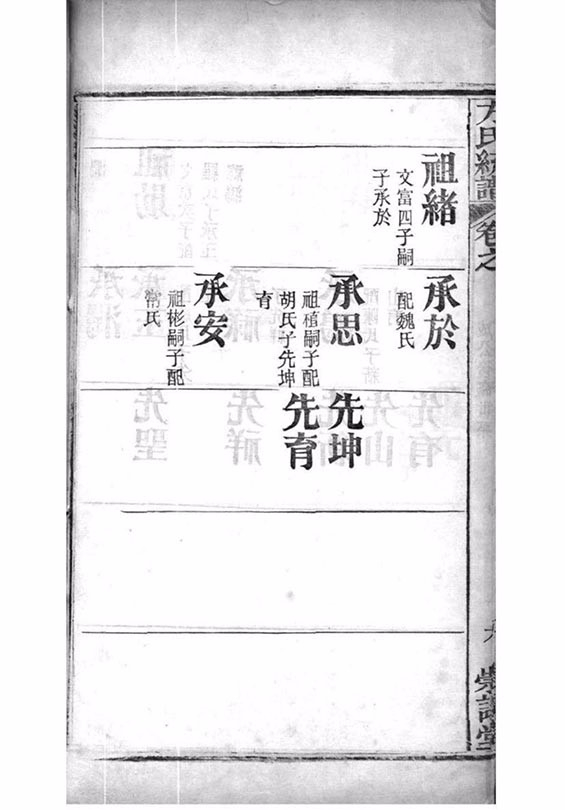 方氏統譜
卷之
祖緒
文富四子嗣
子承於
承於
配魏氏
承思
祖植嗣子配
胡氏子先坤
育
承安
祖彬嗣子配
常氏
先坤
先育